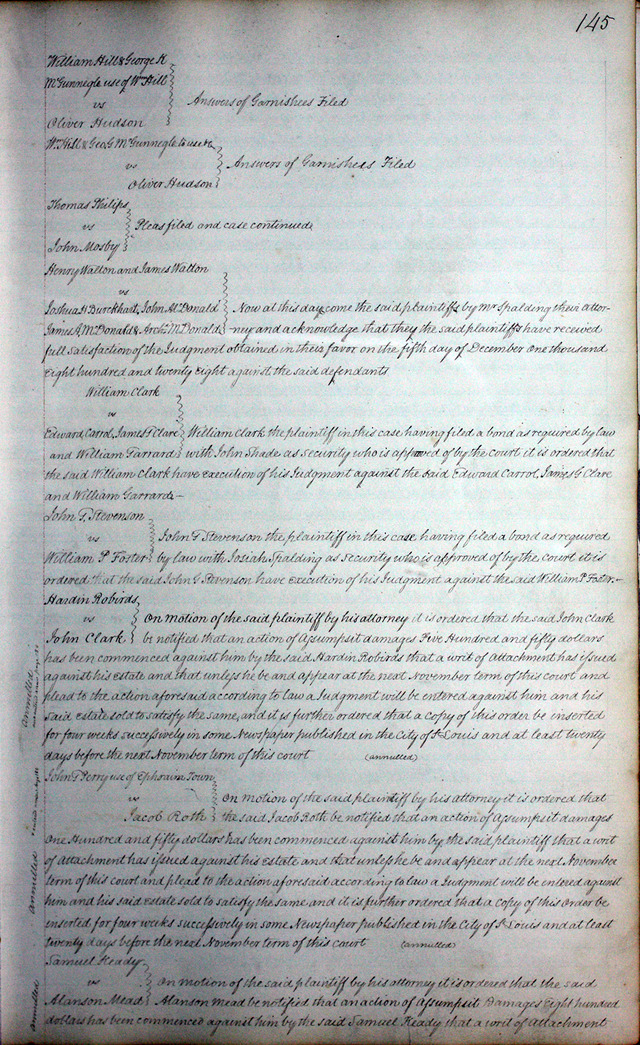 145
William Hill & George K
McGunnegle use of Wm Hill
vs
Answers of Garnishees Filed
Oliver Hudson
Wm Hill & Geo G McGunnegle to use
vs
Answers of Garnishees Filed
Oliver Hudson
Thomas Philips
vs
Pleas filed and case continued
John Mosby
Henry Walton and James Walton
vs
Joshua H Burckhart, John McDonald Now at this day come the said plaintiffs by Mr Spalding their attor-
James A McDonald & Archd McDonald -ney and acknowledge that they the said plaintiffs have received
full satisfaction of the Judgment obtained in their favor on the fifth day of December one thousand
eight hundred and twenty eight against the said defendants
William Clark
vs
Edward Carrol, James G Clare William Clark the plaintiff in this case having filed a bond as required by law
and William Garrard with John Shade as security who is approved of by the court it is ordered that
the said William Clark have execution of his Judgment against the said Edward Carrol, James G Clare
and William Garrard –
John G Stevenson
vs
John G Stevenson the plaintiff in this case having filed a bond as required
William P Foster by law with Josiah Spalding as security who is approved of by the court it is
ordered that the said John G Stevenson have execution of his Judgment against the said William P Foster –
Hardin Robirds
vs
On motion of the said plaintiff by his attorney it is ordered that the said John Clark
John Clark be notified that an action of Assumpsit damages Five Hundred and fifty dollars
has been commenced against him by the said Hardin Robirds that a writ of Attachment has issued
against his estate and that unless he be and appear at the next November term of this court and
plead to the action aforesaid according to law a Judgment will be entered against him and his
said estate sold to satisfy the same, and it is further ordered that a copy of this order be inserted
for four weeks successively in some Newspaper published in the City of St Louis and at least twenty
days before the next November term of this court (annulled)
Annulled
John T Perry use of Ephraim Town
vs
On motion of the said plaintiff by his attorney it is ordered that
Jacob Roth the said Jacob Roth be notified that an action of Assumpsit damages
One Hundred and fifty dollars has been commenced against him by the said plaintiff that a writ
of Attachment has issued against his Estate and that unless he be and appear at the next November
term of this court and plead to the action aforesaid according to law a Judgment will be entered against
him and his said estate sold to satisfy the same and it is further ordered that a copy of this order be
inserted for four weeks successively in some Newspaper published in the City of St Louis and at least
twenty days before the next November term of this court (annulled)
Annulled
Samuel Keady
vs
On motion of the said plaintiff by his attorney it is ordered that the said
Alanson Mead Alanson Mead be notified that an action of Assumpsit Damages Eight hundred
dollars has been commenced against him by the said Samuel Keady that a writ of attachment
Annulled